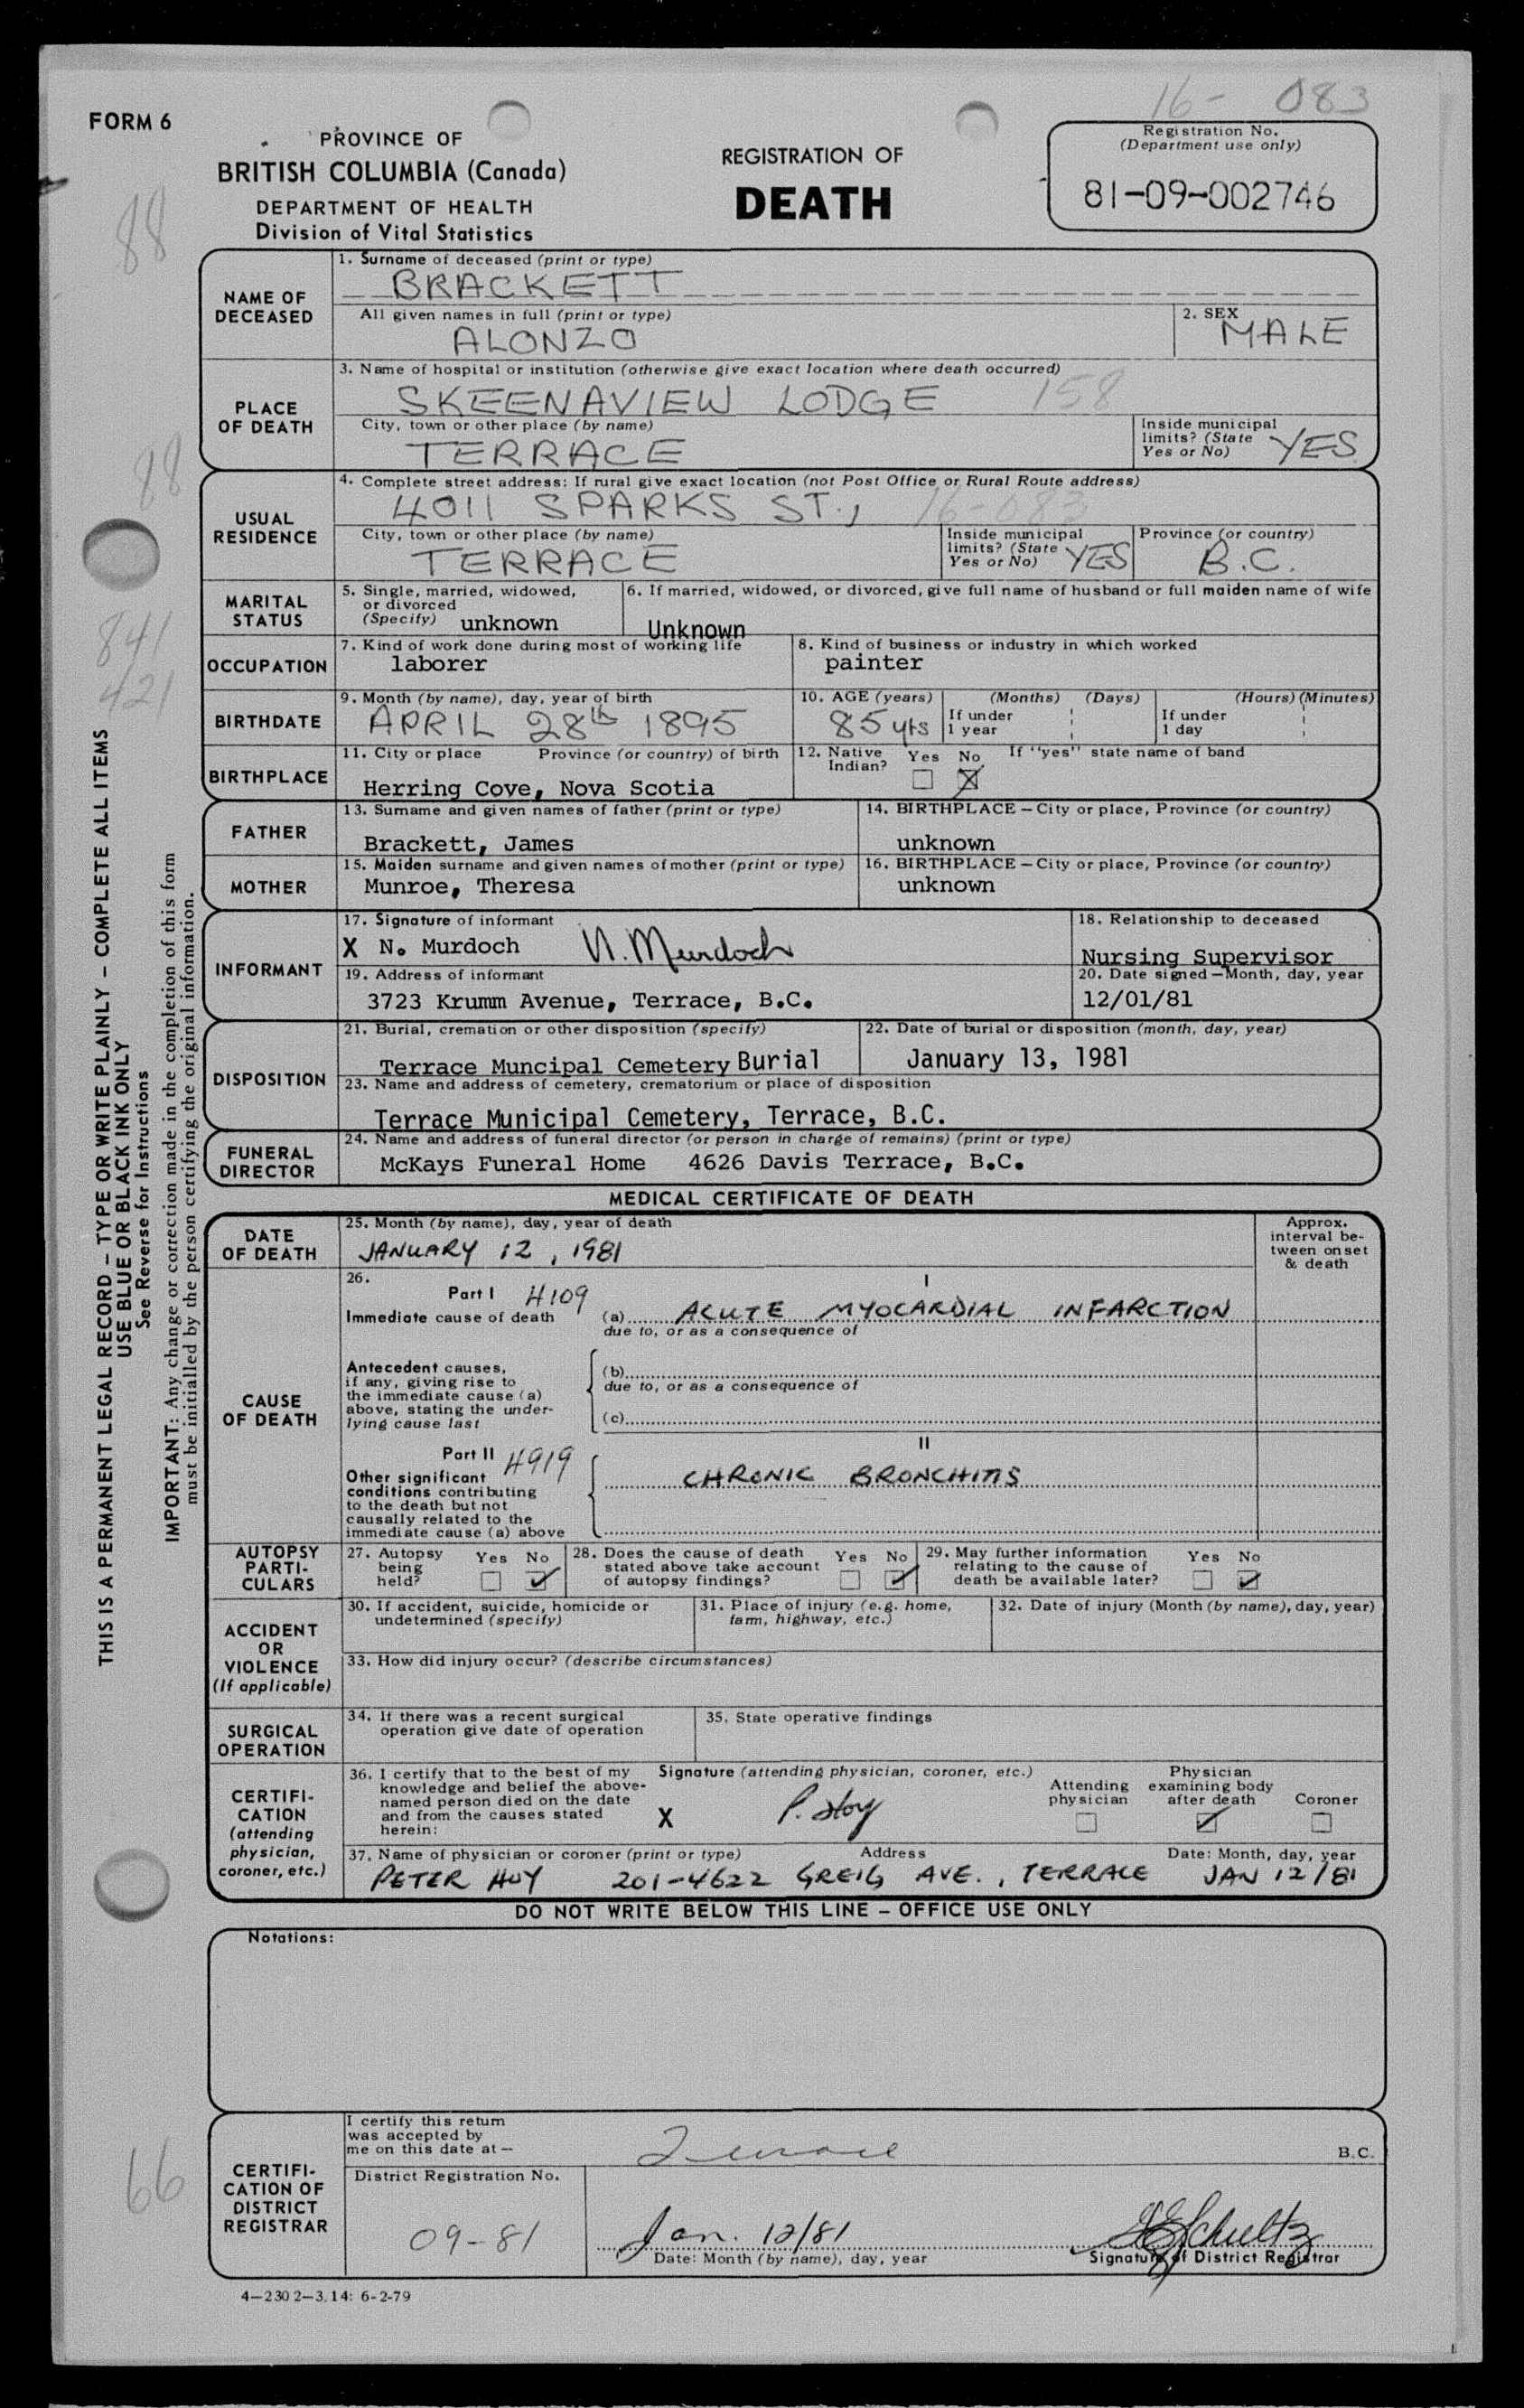 16- 083
FORM 6
PROVINCE OF
BRITISH COLUMBIA (Canada)
DEPARTMENT OF HEALTH
Division of Vital Statistics
REGISTRATION OF
DEATH
Registration No.
(Department use only)
81-09-002746
88
NAME OF DECEASED
1. Surname of deceased (print or type)
BRACKETT
All given names in full (print or type)
ALONZO
2. SEX
MALE
PLACE OF DEATH
3. Name of hospital or institution (otherwise give exact location where death occurred)
SKEENAVIEW LODGE 158
City, town or other place (by name)
TERRACE
Inside municipal limits? (State Yes or No) YES
88
USUAL RESIDENCE
4. Complete street address: If rural give exact location (not Post Office or Rural Route address)
4011 SPARKS ST., 16-083
City, town or other place (by name)
TERRACE
Inside municipal limits? (State Yes or No) YES
Province (or country)
B.C.
841
421
MARITAL STATUS
5. Single, married, widowed, or divorced (Specify) unknown
6. If married, widowed, or divorced, give full name of husband or full maiden name of wife
Unknown
OCCUPATION
7. Kind of work done during most of working life
laborer
8. Kind of business or industry in which worked
painter
BIRTHDATE
9. Month (by name), day, year of birth
APRIL 28th 1895
10. AGE (years) (Months) (Days) (Hours) (Minutes)
85 yrs If under 1 year If under 1 day
BIRTHPLACE
11. City or place Province (or country) of birth
Herring Cove, Nova Scotia
12. Native Indian? Yes No If "yes" state name of band
FATHER
13. Surname and given names of father (print or type)
Brackett, James
14. BIRTHPLACE – City or place, Province (or country)
unknown
MOTHER
15. Maiden surname and given names of mother (print or type)
Munroe, Theresa
16. BIRTHPLACE – City or place, Province (or country)
unknown
INFORMANT
17. Signature of informant
X N. Murdoch N. Murdoch
18. Relationship to deceased
Nursing Supervisor
19. Address of informant
3723 Krumm Avenue, Terrace, B.C.
20. Date signed – Month, day, year
12/01/81
DISPOSITION
21. Burial, cremation or other disposition (specify)
Terrace Muncipal Cemetery Burial
22. Date of burial or disposition (month, day, year)
January 13, 1981
23. Name and address of cemetery, crematorium or place of disposition
Terrace Municipal Cemetery, Terrace, B.C.
FUNERAL DIRECTOR
24. Name and address of funeral director (or person in charge of remains) (print or type)
McKays Funeral Home 4626 Davis Terrace, B.C.
MEDICAL CERTIFICATE OF DEATH
DATE OF DEATH
25. Month (by name), day, year of death
JANUARY 12, 1981
Approx. interval between onset & death
CAUSE OF DEATH
26.
Part I 4109
I
Immediate cause of death
(a) ACUTE MYOCARDIAL INFARCTION
due to, or as a consequence of
Antecedent causes, if any, giving rise to the immediate cause (a) above, stating the underlying cause last
(b)
due to, or as a consequence of
(c)
Part II 4919
II
Other significant conditions contributing to the death but not causally related to the immediate cause (a) above
CHRONIC BRONCHITIS
AUTOPSY PARTICULARS
27. Autopsy being held? Yes No
28. Does the cause of death stated above take account of autopsy findings? Yes No
29. May further information relating to the cause of death be available later? Yes No
ACCIDENT OR VIOLENCE (If applicable)
30. If accident, suicide, homicide or undetermined (specify)
31. Place of injury (e.g. home, farm, highway, etc.)
32. Date of injury (Month (by name), day, year)
33. How did injury occur? (describe circumstances)
SURGICAL OPERATION
34. If there was a recent surgical operation give date of operation
35. State operative findings
CERTIFICATION (attending physician, coroner, etc.)
36. I certify that to the best of my knowledge and belief the above-named person died on the date and from the causes stated herein:
Signature (attending physician, coroner, etc.)
X P. Hoy
Attending physician
Physician examining body after death
Coroner
37. Name of physician or coroner (print or type) Address Date: Month, day, year
PETER HOY 201-4622 GREIG AVE., TERRACE JAN 12/81
DO NOT WRITE BELOW THIS LINE – OFFICE USE ONLY
Notations:
66
CERTIFICATION OF DISTRICT REGISTRAR
I certify this return was accepted by me on this date at –
Terrace B.C.
District Registration No.
09-81
Jan. 12/81
Date: Month (by name), day, year
Schultz
Signature of District Registrar
4–230 2–3.14: 6-2-79
THIS IS A PERMANENT LEGAL RECORD – TYPE OR WRITE PLAINLY – COMPLETE ALL ITEMS
USE BLUE OR BLACK INK ONLY
See Reverse for Instructions
IMPORTANT: Any change or correction made in the completion of this form
must be initialled by the person certifying the original information.